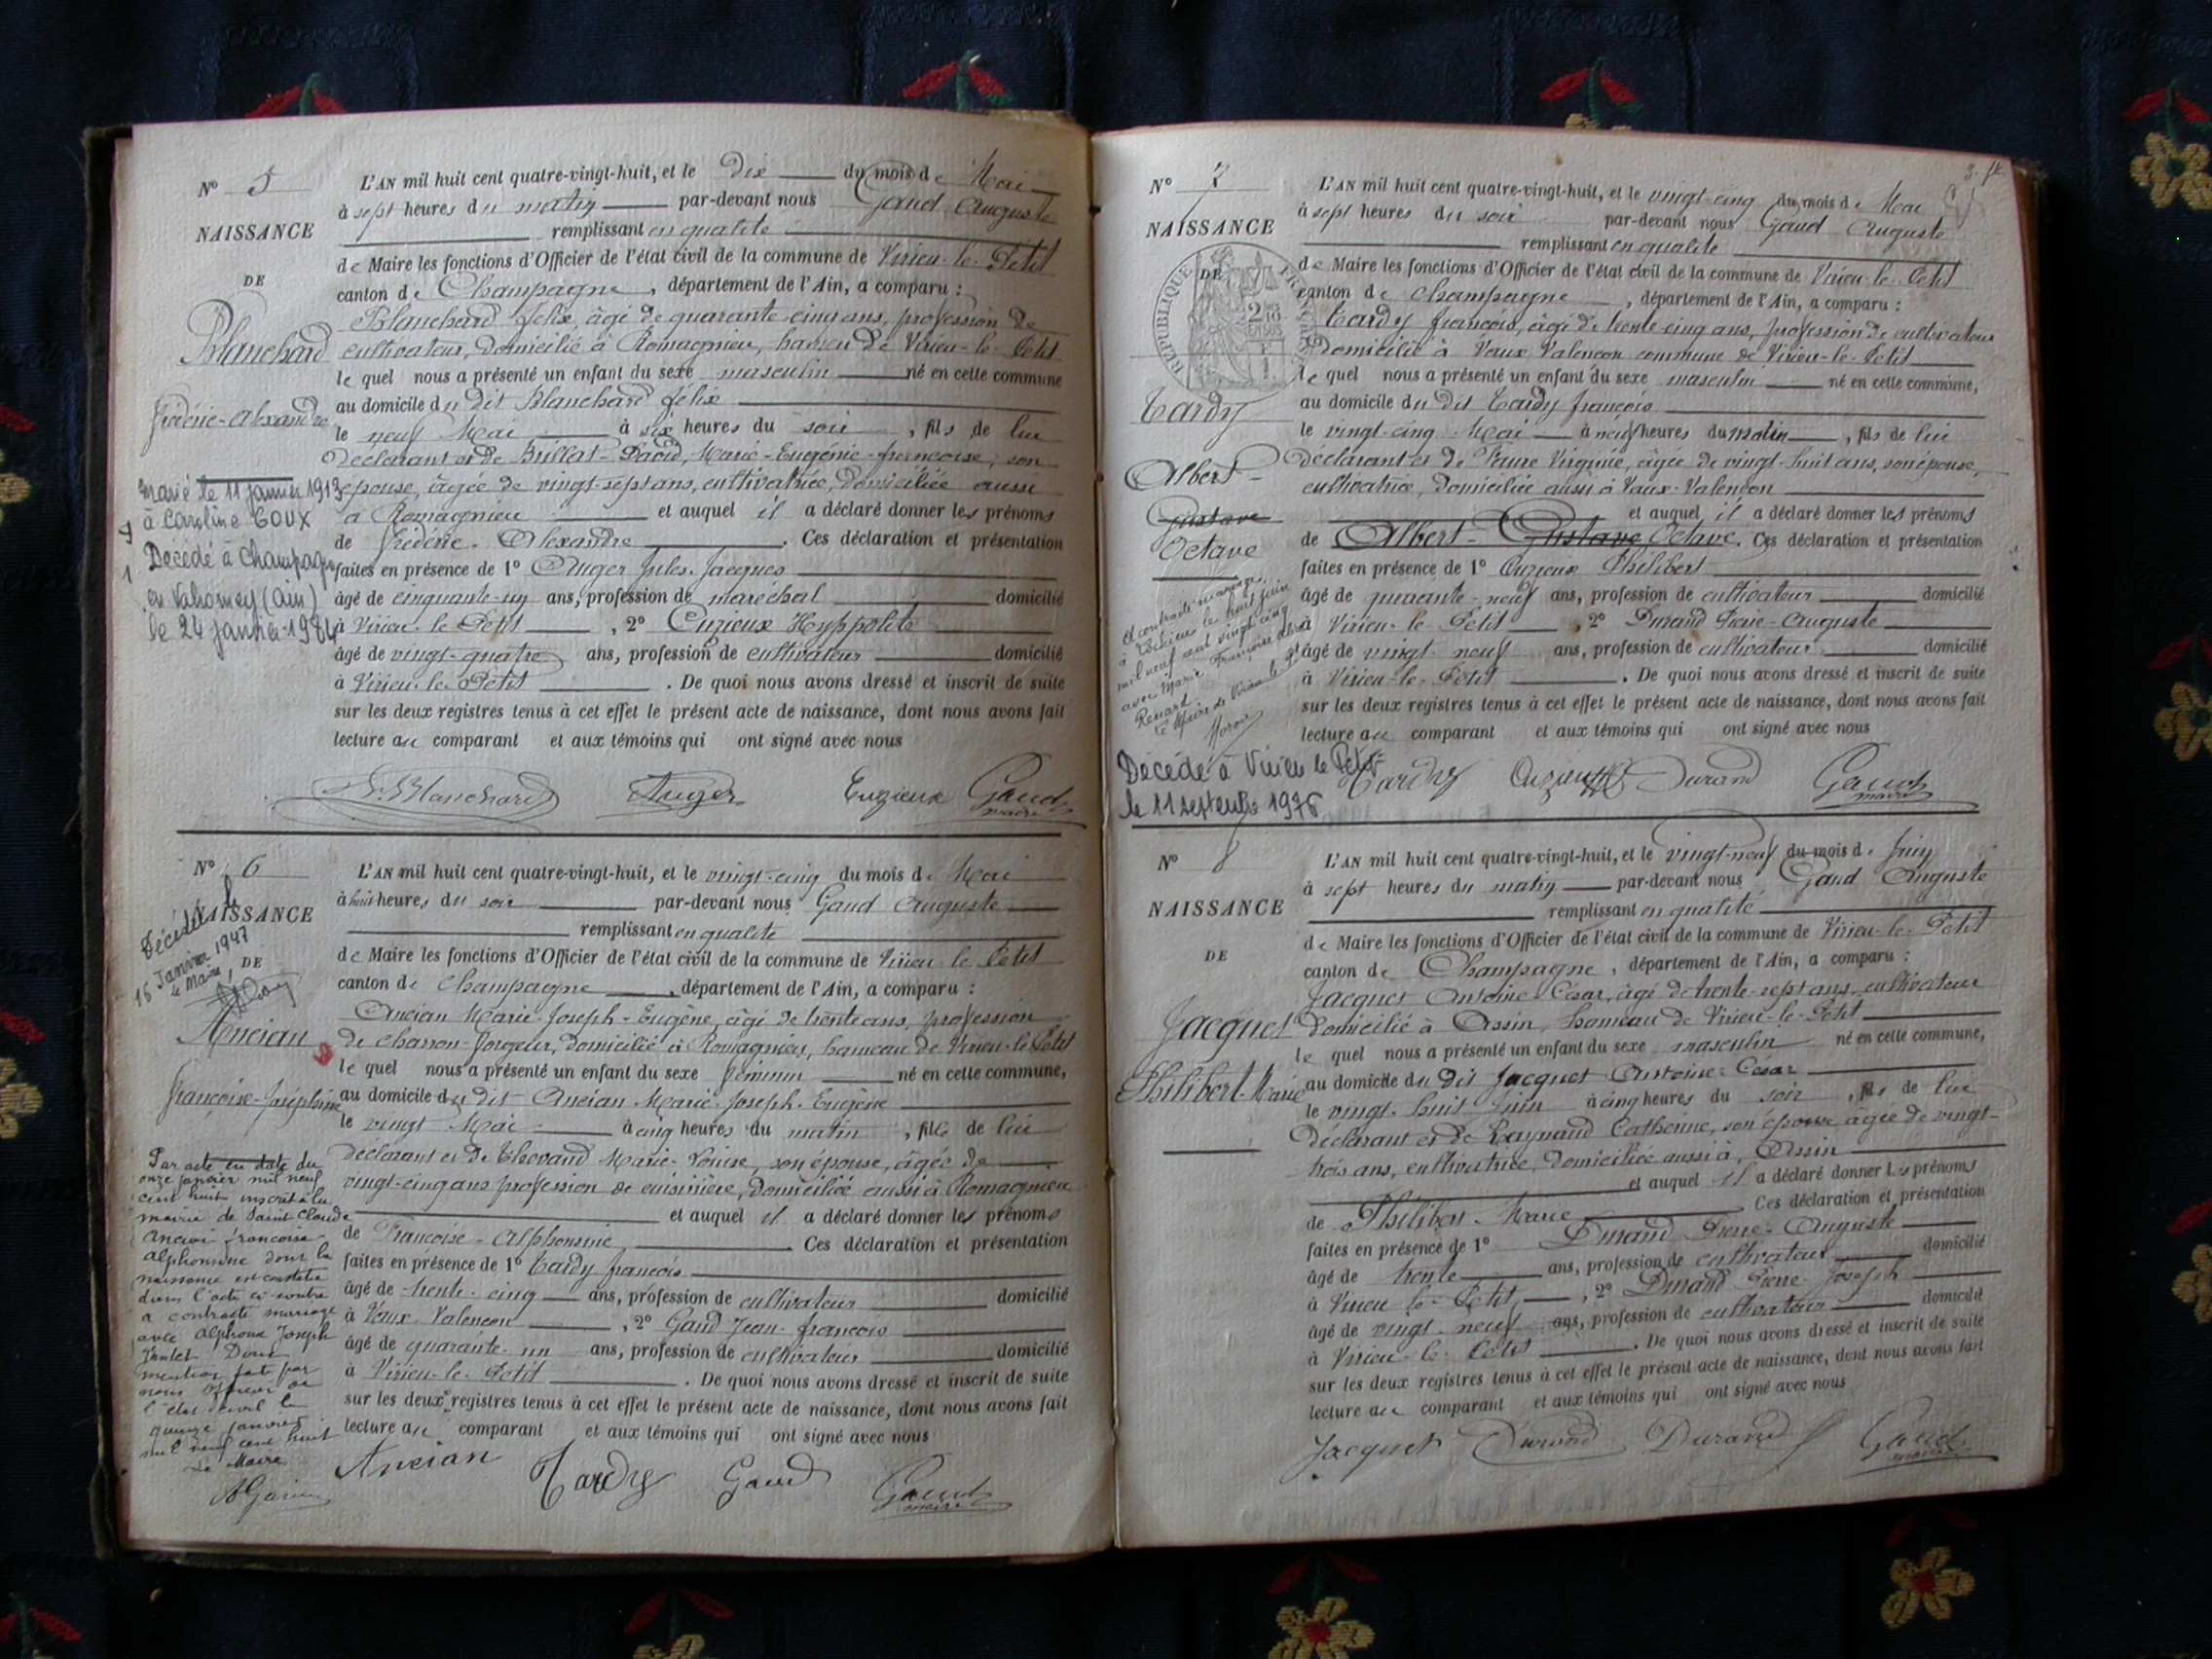 N° 5
NAISSANCE
DE
Blanchard
Frédéric-Alexandre
Marié le 11 janvier 1913
à Caroline GOUX
Décédé à Champagne
en Valromey (Ain)
le 24 janvier 1984
L'AN mil huit cent quatre-vingt-huit, et le dix du mois de Mai
à sept heures du matin par-devant nous Gaud Auguste
remplissant en qualité
de Maire les fonctions d'Officier de l'état civil de la commune de Virieu-le-Petit
canton de Champagne, département de l'Ain, a comparu :
Blanchard félix, âgé de quarante-cinq ans, profession de
cultivateur, domicilié à Romagnieu, hameau de Virieu-le-Petit
le quel nous a présenté un enfant du sexe masculin né en cette commune
au domicile du dit Blanchard félix
le neuf Mai à six heures du soir, fils de lui
déclarant et de Brillat-David, Marie-Eugénie-françoise, son
épouse, âgée de vingt-sept ans, cultivatrice, domiciliée aussi
à Romagnieu et auquel il a déclaré donner les prénoms
de frédéric-Alexandre. Ces déclaration et présentation
faites en présence de 1° Auger Jules-Jacques
âgé de cinquante-un ans, profession de maréchal domicilié
à Virieu-le-Petit, 2° Cuzieux Hyppolite
âgé de vingt-quatre ans, profession de cultivateur domicilié
à Virieu-le-Petit. De quoi nous avons dressé et inscrit de suite
sur les deux registres tenus à cet effet le présent acte de naissance, dont nous avons fait
lecture au comparant et aux témoins qui ont signé avec nous
Blanchard Auger Cuzieux Gaud
maire
N° 6
NAISSANCE
DE
Décédée le
16 Janvier 1947
le Maire,
Ancian
françoise-Joséphine
Par acte en date du
onze janvier mil neuf
cent huit inscrit à la
mairie de Saint Claude
Ancian francoise
alphonsine dont la
naissance est constatée
dans l'acte ci-contre
a contracté mariage
avec Alphonse Joseph
Dont
mention faite par
nous officier de
l'état civil le
quinze janvier
mil neuf cent huit
Le Maire
L'AN mil huit cent quatre-vingt-huit, et le vingt-cinq du mois de Mai
à huit heures du soir par-devant nous Gaud Auguste
remplissant en qualité
de Maire les fonctions d'Officier de l'état civil de la commune de Virieu-le-Petit
canton de Champagne, département de l'Ain, a comparu :
Ancian Marie-Joseph-Eugène, âgé de trente ans, profession
de charron-forgeur, domicilié à Romagnieu, hameau de Virieu-le-Petit
le quel nous a présenté un enfant du sexe féminin né en cette commune,
au domicile du dit Ancian Marie-Joseph-Eugène
le vingt Mai à cinq heures du matin, fille de lui
déclarant et de Thevand Marie-Louise, son épouse, âgée de
vingt-cinq ans profession de cuisinière, domiciliée aussi à Romagnieu
et auquel il a déclaré donner les prénoms
de Françoise-Alphonsine. Ces déclaration et présentation
faites en présence de 1° Tardy françois
âgé de trente-cinq ans, profession de cultivateur domicilié
à Vaux-Valençon, 2° Gaud Jean-françois
âgé de quarante-un ans, profession de cultivateur domicilié
à Virieu-le-Petit. De quoi nous avons dressé et inscrit de suite
sur les deux registres tenus à cet effet le présent acte de naissance, dont nous avons fait
lecture au comparant et aux témoins qui ont signé avec nous
Ancian Tardy Gaud Gaud
maire
N° 7
NAISSANCE
DE
RÉPUBLIQUE FRANÇAISE
Tardy
Albert-
Gustave
Octave
A contracté mariage
à Virieu le huit juin
mil neuf cent vingt cinq
avec Marie Françoise
Renard
Le Maire de Virieu le Pt
Décédé à Virieu le Petit
le 11 septembre 1976
L'AN mil huit cent quatre-vingt-huit, et le vingt-cinq du mois de Mai
à sept heures du soir par-devant nous Gaud Auguste
remplissant en qualité
de Maire les fonctions d'Officier de l'état civil de la commune de Virieu-le-Petit
canton de Champagne, département de l'Ain, a comparu :
Tardy françois, âgé de trente-cinq ans, profession de cultivateur
domicilié à Vaux-Valençon commune de Virieu-le-Petit
le quel nous a présenté un enfant du sexe masculin né en cette commune,
au domicile du dit Tardy françois
le vingt-cinq Mai à neuf heures du matin, fils de lui
déclarant et de Faure Virginie, âgée de vingt-huit ans, son épouse,
cultivatrice, domiciliée aussi à Vaux-Valençon
et auquel il a déclaré donner les prénoms
de Albert-Gustave Octave. Ces déclaration et présentation
faites en présence de 1° Cuzieux Philibert
âgé de quarante-neuf ans, profession de cultivateur domicilié
à Virieu-le-Petit, 2° Durand Pierre-Auguste
âgé de vingt-neuf ans, profession de cultivateur domicilié
à Virieu-le-Petit. De quoi nous avons dressé et inscrit de suite
sur les deux registres tenus à cet effet le présent acte de naissance, dont nous avons fait
lecture au comparant et aux témoins qui ont signé avec nous
Tardy Cuzieux Durand Gaud
maire
N° 8
NAISSANCE
DE
Jacquet
Philibert-Marie
L'AN mil huit cent quatre-vingt-huit, et le vingt-neuf du mois de Juin
à sept heures du matin par-devant nous Gaud Auguste
remplissant en qualité
de Maire les fonctions d'Officier de l'état civil de la commune de Virieu-le-Petit
canton de Champagne, département de l'Ain, a comparu :
Jacquet Antoine-César, âgé de trente-sept ans, cultivateur
domicilié à Assin, hameau de Virieu-le-Petit
le quel nous a présenté un enfant du sexe masculin né en cette commune,
au domicile du dit Jacquet Antoine-César
le vingt-huit Juin à cinq heures du soir, fils de lui
déclarant et de Raynaud Catherine, son épouse âgée de vingt-
trois ans, cultivatrice, domiciliée aussi à Assin
et auquel il a déclaré donner les prénoms
de Philibert-Marie Ces déclaration et présentation
faites en présence de 1° Durand Pierre-Auguste
âgé de trente ans, profession de cultivateur domicilié
à Virieu-le-Petit, 2° Durand Pierre-Joseph
âgé de vingt-neuf ans, profession de cultivateur domicilié
à Virieu-le-Petit. De quoi nous avons dressé et inscrit de suite
sur les deux registres tenus à cet effet le présent acte de naissance, dont nous avons fait
lecture au comparant et aux témoins qui ont signé avec nous
Jacquet Durand Durand Gaud
maire